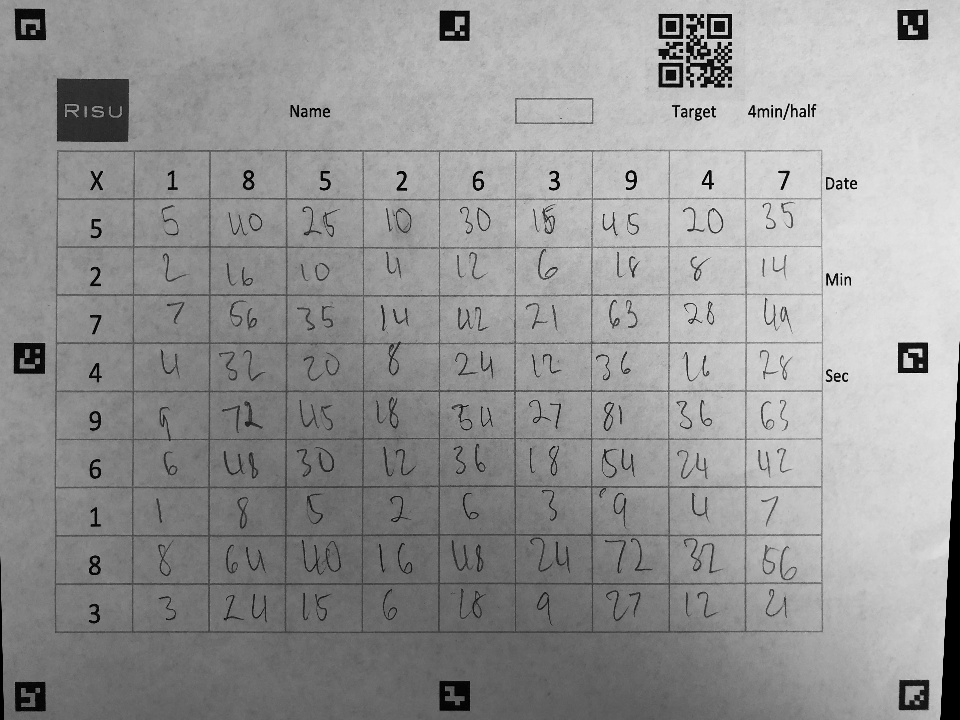 RISU
Name
Target 4min/half
X 1 8 5 2 6 3 9 4 7 Date
5 5 40 25 10 30 15 45 20 35
2 2 16 10 4 12 6 18 8 14 Min
7 7 56 35 14 42 21 63 28 49
4 4 32 20 8 24 12 36 16 28 Sec
9 9 72 45 18 54 27 81 36 63
6 6 48 30 12 36 18 54 24 42
1 1 8 5 2 6 3 9 4 7
8 8 64 40 16 48 24 72 32 56
3 3 24 15 6 18 9 27 12 21